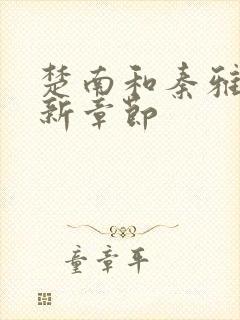 楚南和秦雅
新章节
童章平